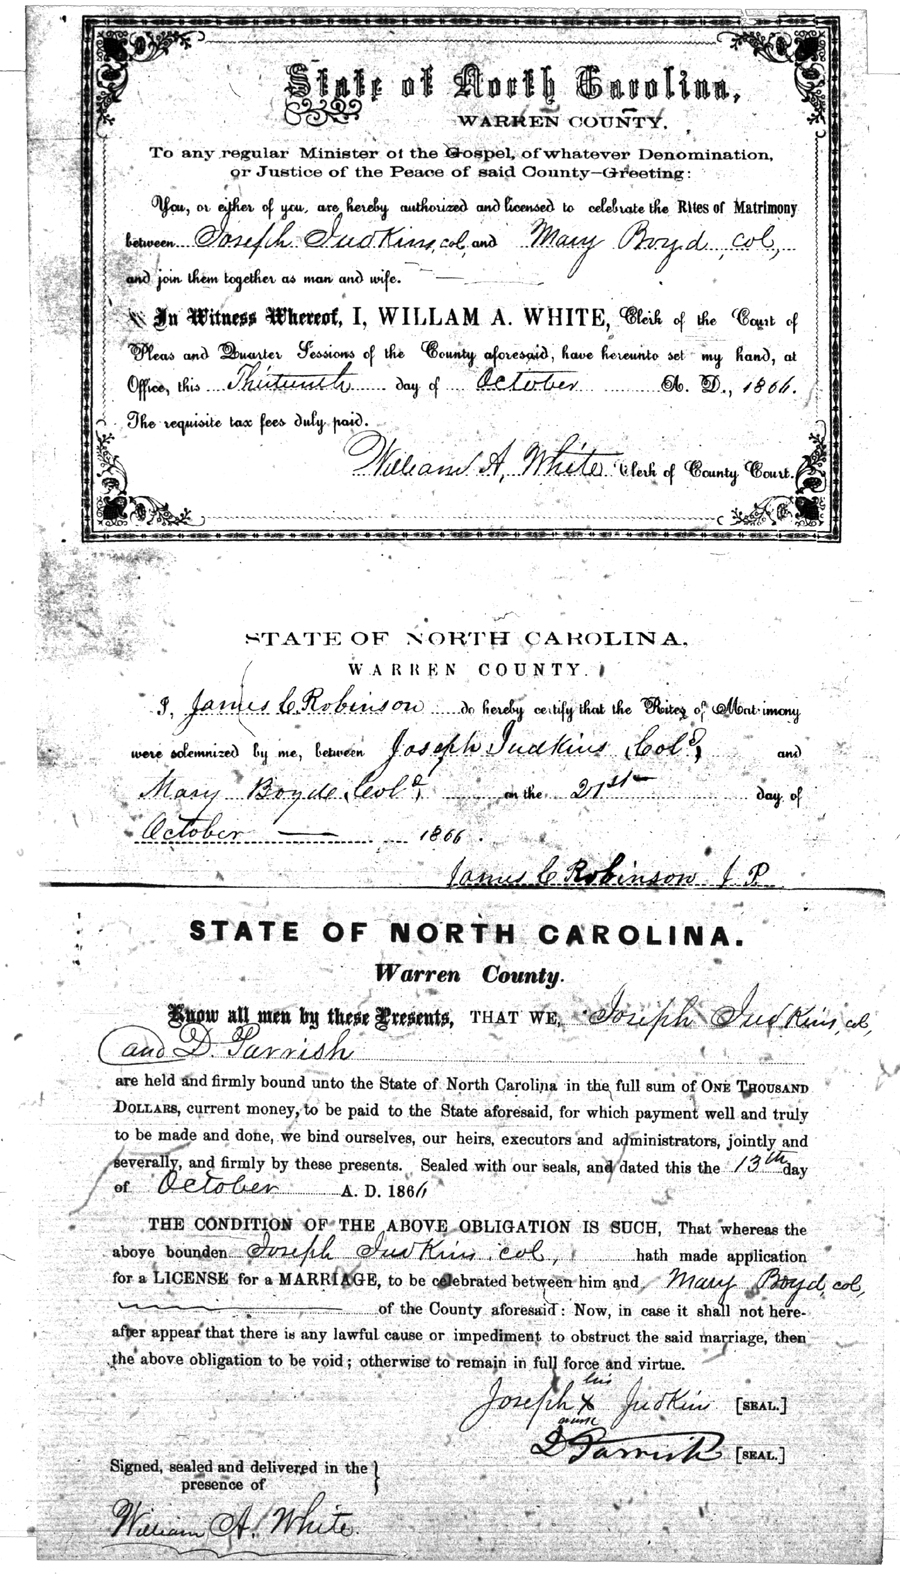 State of North Carolina,
WARREN COUNTY.
To any regular Minister of the Gospel, of whatever Denomination,
or Justice of the Peace of said County—Greeting:
You, or either of you, are hereby authorized and licensed to celebrate the Rites of Matrimony
between Joseph Judkins, col, and Mary Boyd, col,
and join them together as man and wife.
In Witness Whereof, I, WILLAM A. WHITE, Clerk of the Court of
Pleas and Quarter Sessions of the County aforesaid, have hereunto set my hand, at
Office, this Thirteenth day of October A. D., 1866.
The requisite tax fees duly paid.
William A. White Clerk of County Court.
STATE OF NORTH CAROLINA.
WARREN COUNTY.
I, James C. Robinson do hereby certify that the Rites of Matrimony
were solemnized by me, between Joseph Judkins Cold, and
Mary Boyde, Cold, on the 21st day of
October 1866.
James C Robinson J. P.
STATE OF NORTH CAROLINA.
Warren County.
Know all men by these Presents, THAT WE, Joseph Judkins, col,
and D. Parrish
are held and firmly bound unto the State of North Carolina in the full sum of ONE THOUSAND
DOLLARS, current money, to be paid to the State aforesaid, for which payment well and truly
to be made and done, we bind ourselves, our heirs, executors and administrators, jointly and
severally, and firmly by these presents. Sealed with our seals, and dated this the 13th day
of October A. D. 1866
THE CONDITION OF THE ABOVE OBLIGATION IS SUCH, That whereas the
above bounden Joseph Judkins, col, hath made application
for a LICENSE for a MARRIAGE, to be celebrated between him and Mary Boyd, col,
of the County aforesaid: Now, in case it shall not here-
after appear that there is any lawful cause or impediment to obstruct the said marriage, then
the above obligation to be void; otherwise to remain in full force and virtue.
his
Joseph X Judkins [SEAL.]
mark
D Parrish [SEAL.]
Signed, sealed and delivered in the
presence of
William A. White